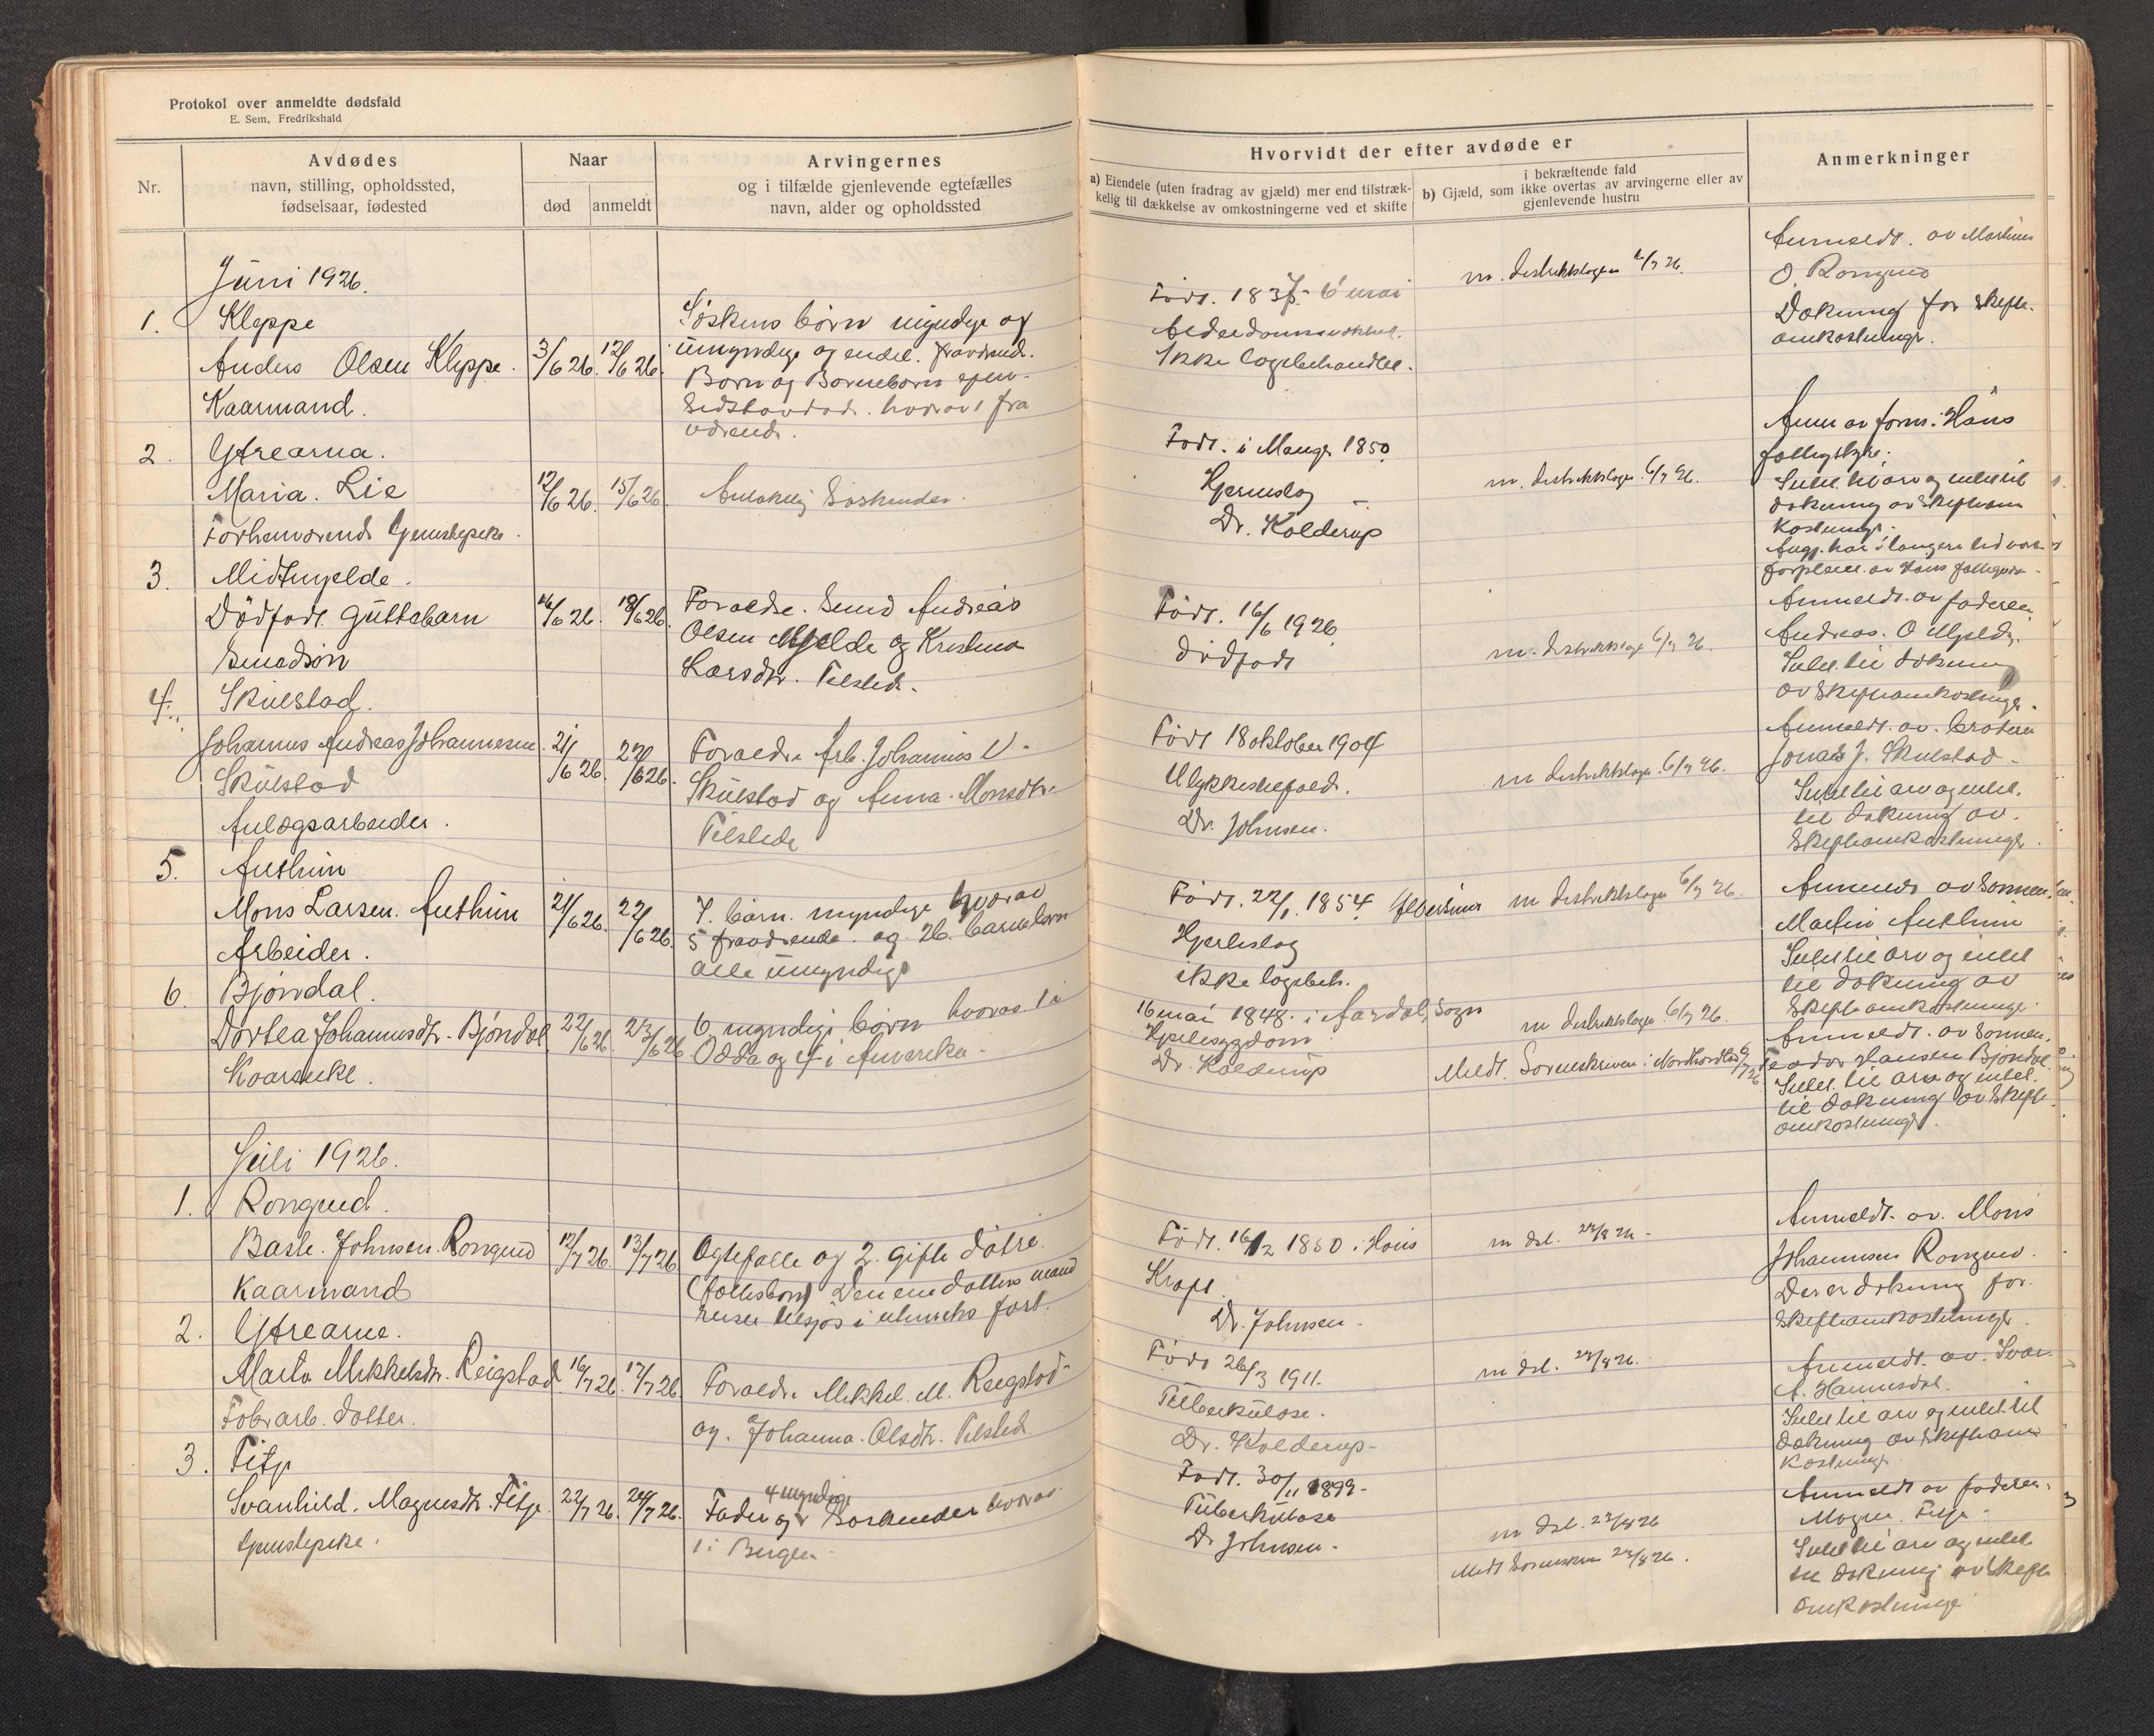 Protokol over anmeldte dødsfald
E. Sem, Fredrikshald
Nr.
Avdødes
navn, stilling, opholdssted,
fødselsaar, fødested
Naar
død
anmeldt
Arvingernes
og i tilfælde gjenlevende egtefælles
navn, alder og opholdssted
Hvorvidt der efter avdøde er
a) Eiendele (uten fradrag av gjæld) mer end tilstræk-
kelig til dækkelse av omkostningerne ved et skifte
i bekræftende fald
b) Gjæld, som ikke overtas av arvingerne eller av
gjenlevende hustru
Anmerkninger
Juni 1926.
1. Kleppe
Anders Olsen Kleppe.
Kaarmand.
3/6 26. 12/6 26.
Søskens børn myndige og
umyndige og endel fraværend.
Børn og Børnebørn
hvorav 1 fra
værend.
Født. 1837 6 mai
Alderdomssvakhet.
Ikke lægebehandlet.
m. distriktslægen 6/7 26.
Anmeldt. av Martinus
O. Rongved
Dækning for skifte-
omkostninger.
2. Ytrearna.
Maria. Lie
Forhenværende tjenestepike.
12/6 26. 15/6 26.
Antakelig Søskender.
Født. i Manger 1850.
Hjerneslag
Dr. Kolderup
m. distriktslægen 6/7 26.
Anm av form. i Haus
fattigstyre.
Intet til arv og intet til
dækning av skifteom
kostninger.
forpleiet av Haus
3. Midtmjelde.
Dødfødt Guttebarn
Smedsøn
16/6 26. 18/6 26.
Foræedre. Smed Andreas
Olsen Mjelde og Kristina
Larsdtr. Tilsted.
Født. 16/6 1926
dødfødt
m. distriktslæge 6/7 26.
Anmeldt. av faderen
Andreas. O Mjelde.
Intet til dækning
av skifteomkostninger.
4. Skulstad.
Johannes Andreas Johannesen
Skulstad
Anlægsarbeider.
21/6 26. 22/6 26.
Forældre Arb. Johannes
Skulstad og Anna Monsdtr.
Tilstede
Født 18 oktober 1904
Ulykkestilfælde.
Dr. Johnsen.
m distriktslægen. 6/7 26.
Anmeldt. av. broderen
Jonas J. Skulstad.
Intet til arv og intet.
til dækning av.
skifteomkostninger.
5. Authun
Mons Larsen. Authun
Arbeider.
21/6 26. 22/6 26.
7. børn. myndige hvorav
5 fraværende. og 26. barnebørn
alle umyndige
Født. 22/1. 1854.
Hjerteslag
ikke lægebeh.
m distriktslægen 6/7 26.
Anmeldt av Sønnen.
Martin Authun
Intet til arv og intet
til dækning av
skifteomkostninger.
6. Bjørndal.
Dortea Johannesdtr. Bjørndal
Kaarenke.
22/6 26. 23/6 26
6. myndige børn hvorav 1 i
Odda og 4 i Amerika.
16 mai 1848. i Aardal, Sogn
Hjertesygdom
Dr. Kolderup
m distriktslægen. 6/7 26.
Meldt. Sorenskriveren i Nordhordland 6/7 26.
Anmeldt. av Sønnen.
Teodor Hansen Bjørndal.
Intet. til arv og intet.
til dækning av skifte
omkostninger.
Juli 1926.
1. Rongved.
Basle. Johnsen. Rongved
Kaarmand
12/7 26. 13/7 26
Egtefælle og 2. gifte døtre.
(fællesborn) Den ene datters mand
reiser tilsjøs i utenriks fart.
Født. 16/12 1850 i Haus
Kræft.
Dr. Johnsen.
m dsl. 23/8 26
Anmeldt. av. Mons
Johannesen Rongved.
Der er dækning for.
skifteomkostninger.
2. Ytrearne.
Marta Mikkelsdtr. Reigstad
Fabr arb. datter.
16/7 26. 17/7 26
Forældre Mikkel. M. Reigstad
og. Johanna. Olsdtr. Tilsted.
Født 26/3 1911.
Tuberkulose.
Dr. Kolderup
m dsl. 23/8 26.
Anmeldt. av. Ivar.
A. Hannesdal.
Intet til arv og intet til
dækning av skifteom
kostninger
3. Fitje
Svanhild. Magnesdtr. Fitje.
tjenestepike.
22/7 26. 24/7 26.
4 myndige
Fader og Søskender hvorav
1 i Bergen
Født. 30/11 1899.
Tuberkulose
Dr Johnsen.
m dsl. 23/8 26
Meldt Sorenskriv 23/8 26.
Anmeldt av faderen.
Magne. Fitje
Intet til arv og intet
til dækning av skifte
omkostninger